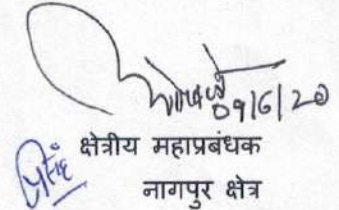 09/6/20
क्षेत्रीय महाप्रबंधक
नागपुर क्षेत्र